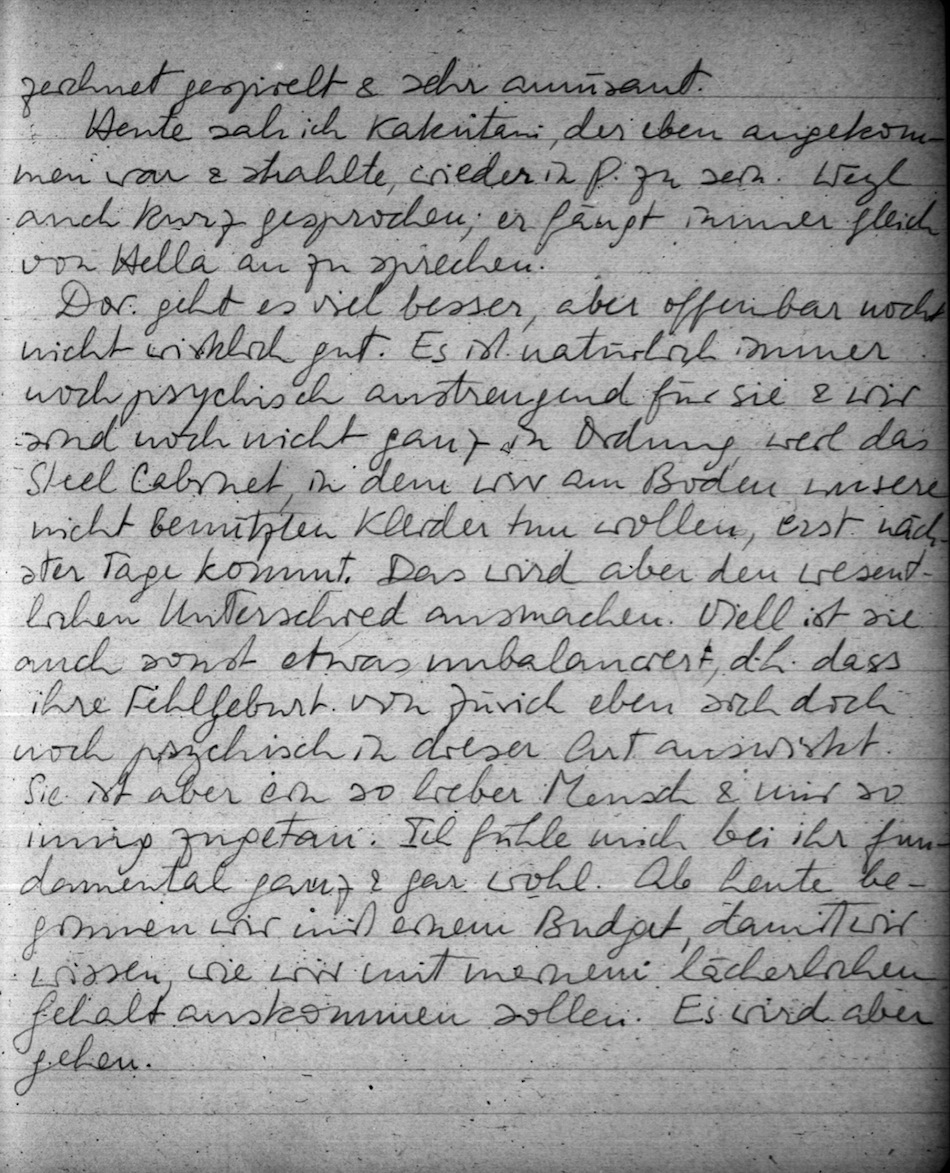 zeichnet gespielt & sehr amüsant.
Heute sah ich Kakutani, der eben angekom-
men war & strahlte, wieder in P. zu sein. Weyl
auch kurz gesprochen; er fängt immer gleich
von Hella an zu sprechen.
Dor. geht es viel besser, aber offenbar noch
nicht wirklich gut. Es ist natürlich immer
noch psychisch anstrengend für sie & wir
sind noch nicht ganz in Ordnung, weil das
Steel Cabinet, in dem wir am Boden unsere
nicht benützten Kleider tun wollen, erst näch-
ster Tage kommt. Das wird aber den wesent-
lichen Unterschied ausmachen. Viell ist sie
auch sonst etwas unbalanciert, d.h. dass
ihre Fehlgeburt von Zürich eben sich doch
noch psychisch in dieser Art auswirkt.
Sie ist aber ein so lieber Mensch & mir so
innig zugetan. Ich fühle mich bei ihr fun-
damental ganz & gar wohl. Ab heute be-
ginnen wir mit einem Budget, damit wir
wissen, wie wir mit meinem lächerlichen
Gehalt auskommen sollen. Es wird aber
gehen.